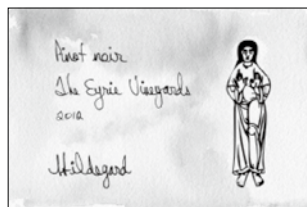 Pinot noir
The Eyrie Vineyards
2012
Hildegard